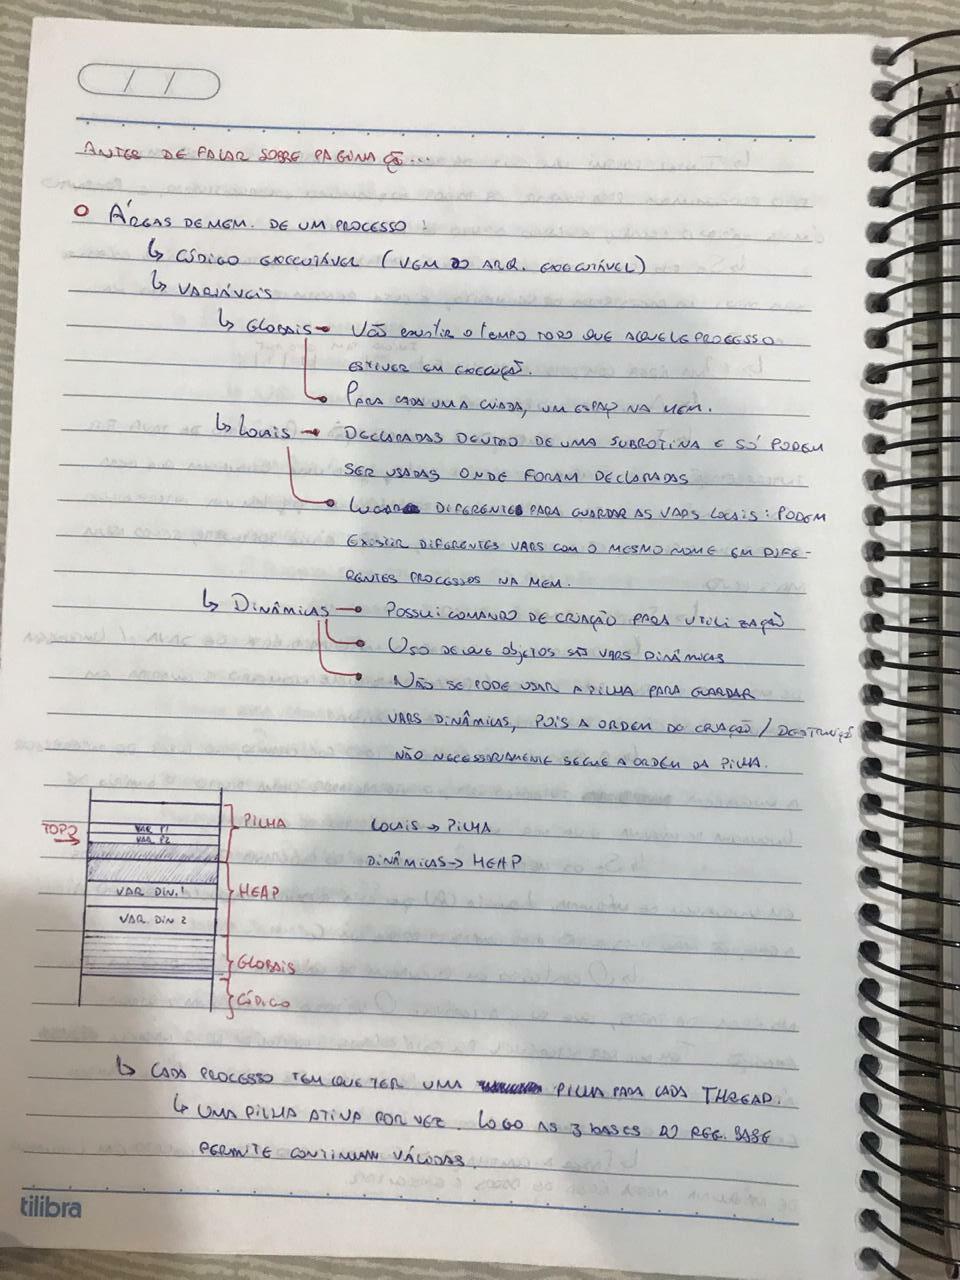 ANTES DE FALAR SOBRE PAGINAÇÃO...
ÁREAS DE MEM. DE UM PROCESSO!
↳ CÓDIGO EXECUTÁVEL (VEM DO ARQ. EXECUTÁVEL)
↳ VARIÁVEIS
↳ GLOBAIS → VÃO EXISTIR O TEMPO TODO QUE AQUELE PROCESSO
ESTIVER EM EXECUÇÃO.
PARA CADA UMA CRIADA, UM ESPAÇO NA MEM.
↳ LOCAIS → DECLARADAS DENTRO DE UMA SUBROTINA E SÓ PODEM
SER USADAS ONDE FORAM DECLARADAS
LUGARES DIFERENTES PARA GUARDAR AS VARS LOCAIS: PODEM
EXISTIR DIFERENTES VARS COM O MESMO NOME EM DIFE-
RENTES PROCESSOS NA MEM.
↳ DINÂMICAS → POSSUI COMANDO DE CRIAÇÃO PARA UTILIZAÇÃO
USO DE QUE OBJETOS SÃO VARS DINÂMICAS
NÃO SE PODE USAR A PILHA PARA GUARDAR
VARS DINÂMICAS, POIS A ORDEM DO CRIAÇÃO / DESTRUIÇÃO
NÃO NECESSARIAMENTE SEGUE A ORDEM DA PILHA.
TOPO
VAR P1
VAR P2
VAR DIN. 1
VAR DIN 2
PILHA
HEAP
GLOBAIS
CÓDIGO
LOCAIS → PILHA
DINÂMICAS → HEAP
↳ CADA PROCESSO TEM QUE TER UMA PILHA PARA CADA THREAD.
↳ UMA PILHA ATIVA POR VEZ. LOGO AS 3 BASES DO REG. BASE
PERMITE CONTINUAM VÁLIDAS.
tilibra